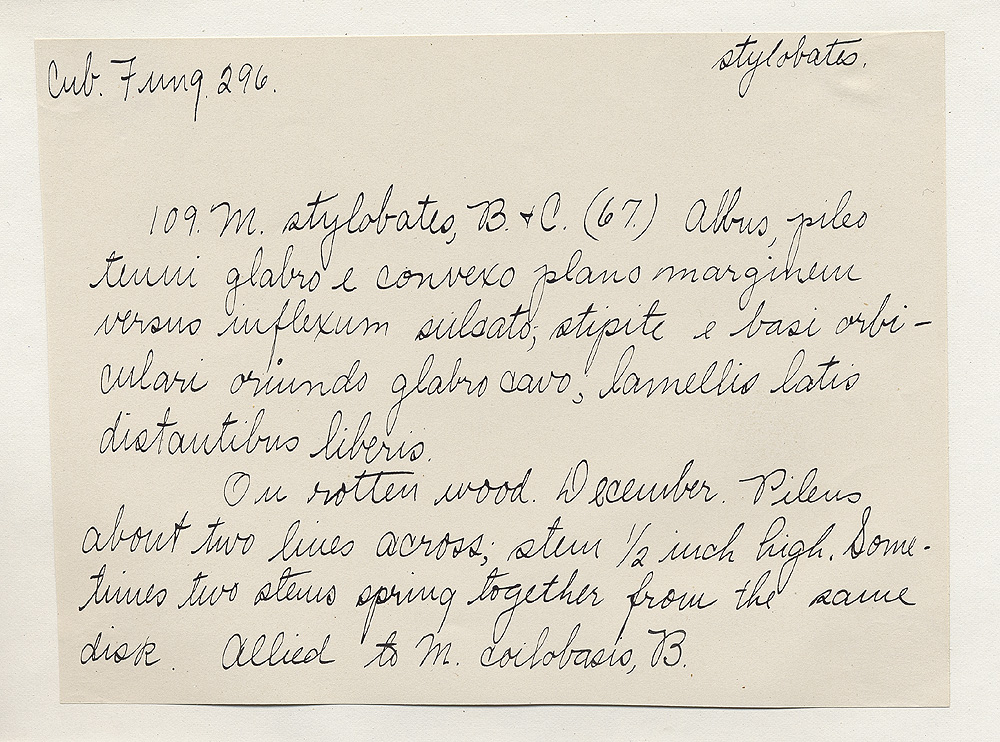 Cub. Fung. 296.
stylobates.
109. M. stylobates, B. & C. (67.) Albus, pileo
tenui glabro e convexo plano marginem
versus inflexum sulcato; stipite e basi orbi-
culari oriundo glabro cavo; lamellis latis
distantibus liberis.
On rotten wood. December. Pileus
about two lines across; stem 1/2 inch high. Some-
times two stems spring together from the same
disk. Allied to M. coilobasis, B.